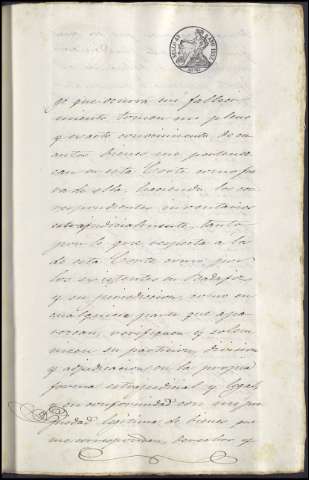 go que ocurra mi falleci-
miento tomen un pleno
y exacto conocimiento de cu-
antos bienes me pertenez-
can en esta Corte como fue-
ra de ella, haciendo los co-
rrespondientes inventarios
extrajudicialmente, tanto
por lo que respecta a los
de esta Corte como por
los existentes en Badajoz
y su jurisdiccion, como en
cualquiera parte que apa-
rezcan, verifiquen y solem-
nicen su particion, division
y adjudicacion en la propia
forma extrajudicial y legal
y en conformidad con mi pro-
piedad legitima de bienes que
me corresponden, derechos y